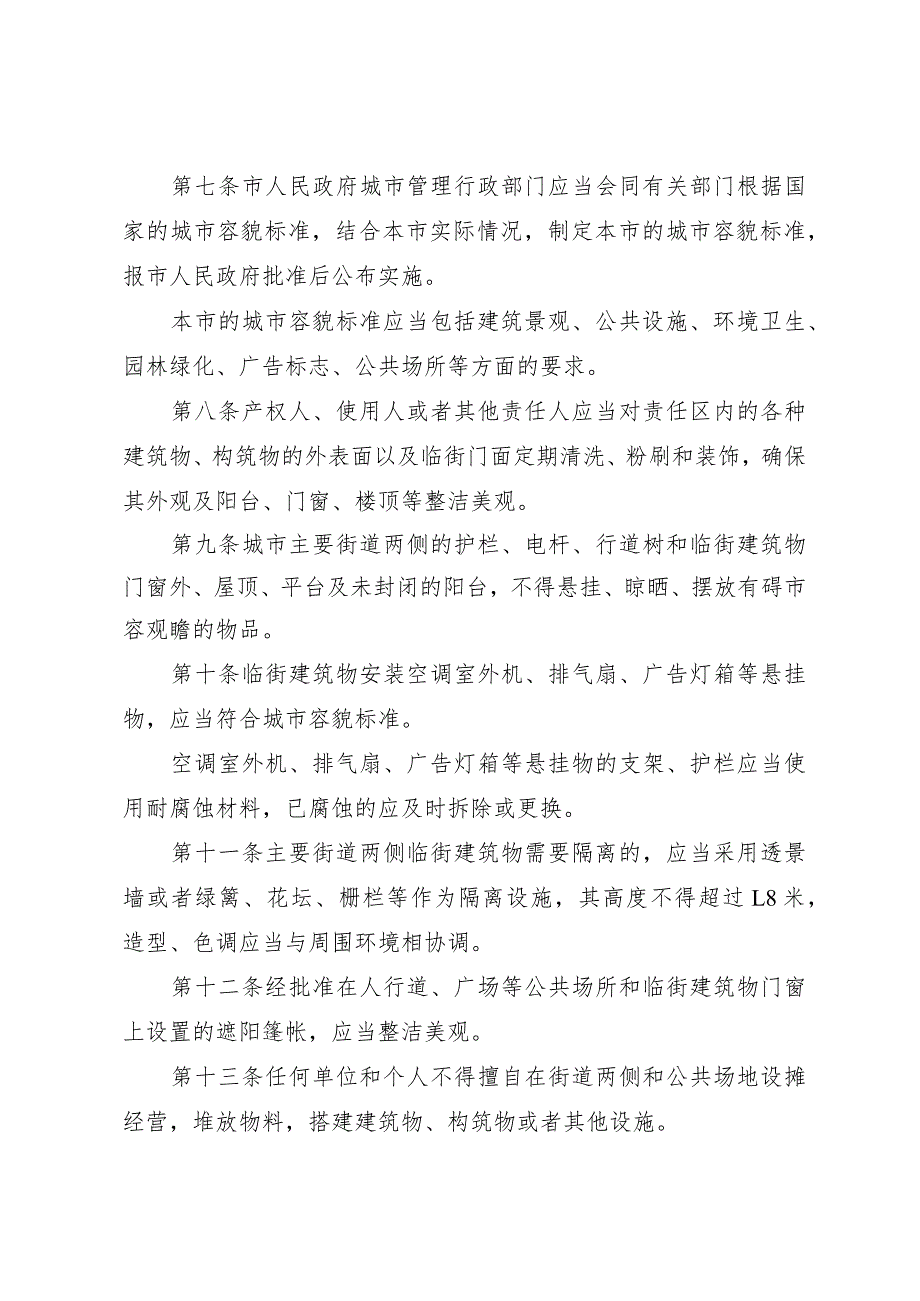 第七条市人民政府城市管理行政部门应当会同有关部门根据国
家的城市容貌标准，结合本市实际情况，制定本市的城市容貌标准，
报市人民政府批准后公布实施。
本市的城市容貌标准应当包括建筑景观、公共设施、环境卫生、
园林绿化、广告标志、公共场所等方面的要求。
第八条产权人、使用人或者其他责任人应当对责任区内的各种
建筑物、构筑物的外表面以及临街门面定期清洗、粉刷和装饰，确保
其外观及阳台、门窗、楼顶等整洁美观。
第九条城市主要街道两侧的护栏、电杆、行道树和临街建筑物
门窗外、屋顶、平台及未封闭的阳台，不得悬挂、晾晒、摆放有碍市
容观瞻的物品。
第十条临街建筑物安装空调室外机、排气扇、广告灯箱等悬挂
物，应当符合城市容貌标准。
空调室外机、排气扇、广告灯箱等悬挂物的支架、护栏应当使
用耐腐蚀材料，已腐蚀的应及时拆除或更换。
第十一条主要街道两侧临街建筑物需要隔离的，应当采用透景
墙或者绿篱、花坛、栅栏等作为隔离设施，其高度不得超过 L8 米，
造型、色调应当与周围环境相协调。
第十二条经批准在人行道、广场等公共场所和临街建筑物门窗
上设置的遮阳篷帐，应当整洁美观。
第十三条任何单位和个人不得擅自在街道两侧和公共场地设摊
经营，堆放物料，搭建建筑物、构筑物或者其他设施。